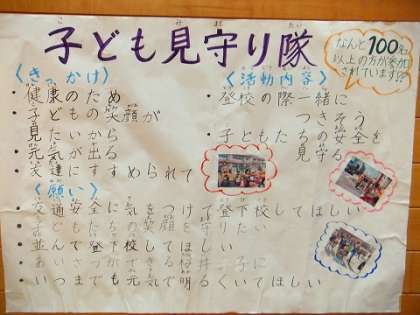 子ども見守り隊
なんと100名
以上の方が参加
されています!!
〈きっかけ〉
・健康のため
・子どもの笑顔が
見たいから
・元気が出る
・友達にすすめられて
〈活動内容〉
・登校の際一緒に
つきそう
・子どもたちの安全を
見守る
〈願い〉
・交通安全に気をつけて登下校してほしい
・子どもたちの笑顔を守りたい
・並んで登下校してほしい
・あいさつができる
・いつまでも元気で明るくいてほしい